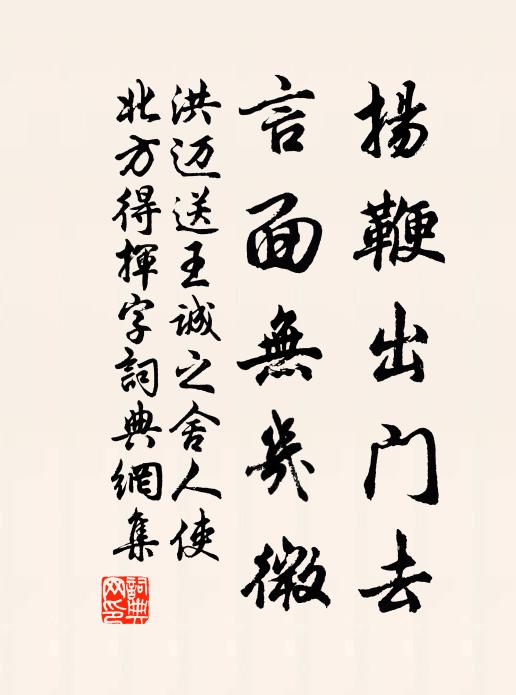 揚鞭出門去
言面無幾微
洪迈送王诚之舍人使
北方得揮字詞典網集
詞典
网印